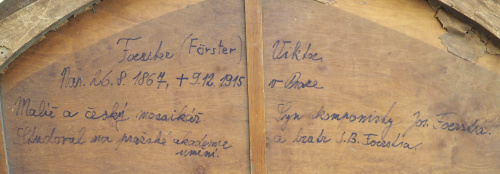 Foerster (Förster) Viktor
Nar. 26.8.1867, +9.12.1915 v Praze
Malíř a český mosaikář
Syn komponisty Jos. Foerstra
Studoval na pražské akademie umění.
a bratr J.B. Foerstra.